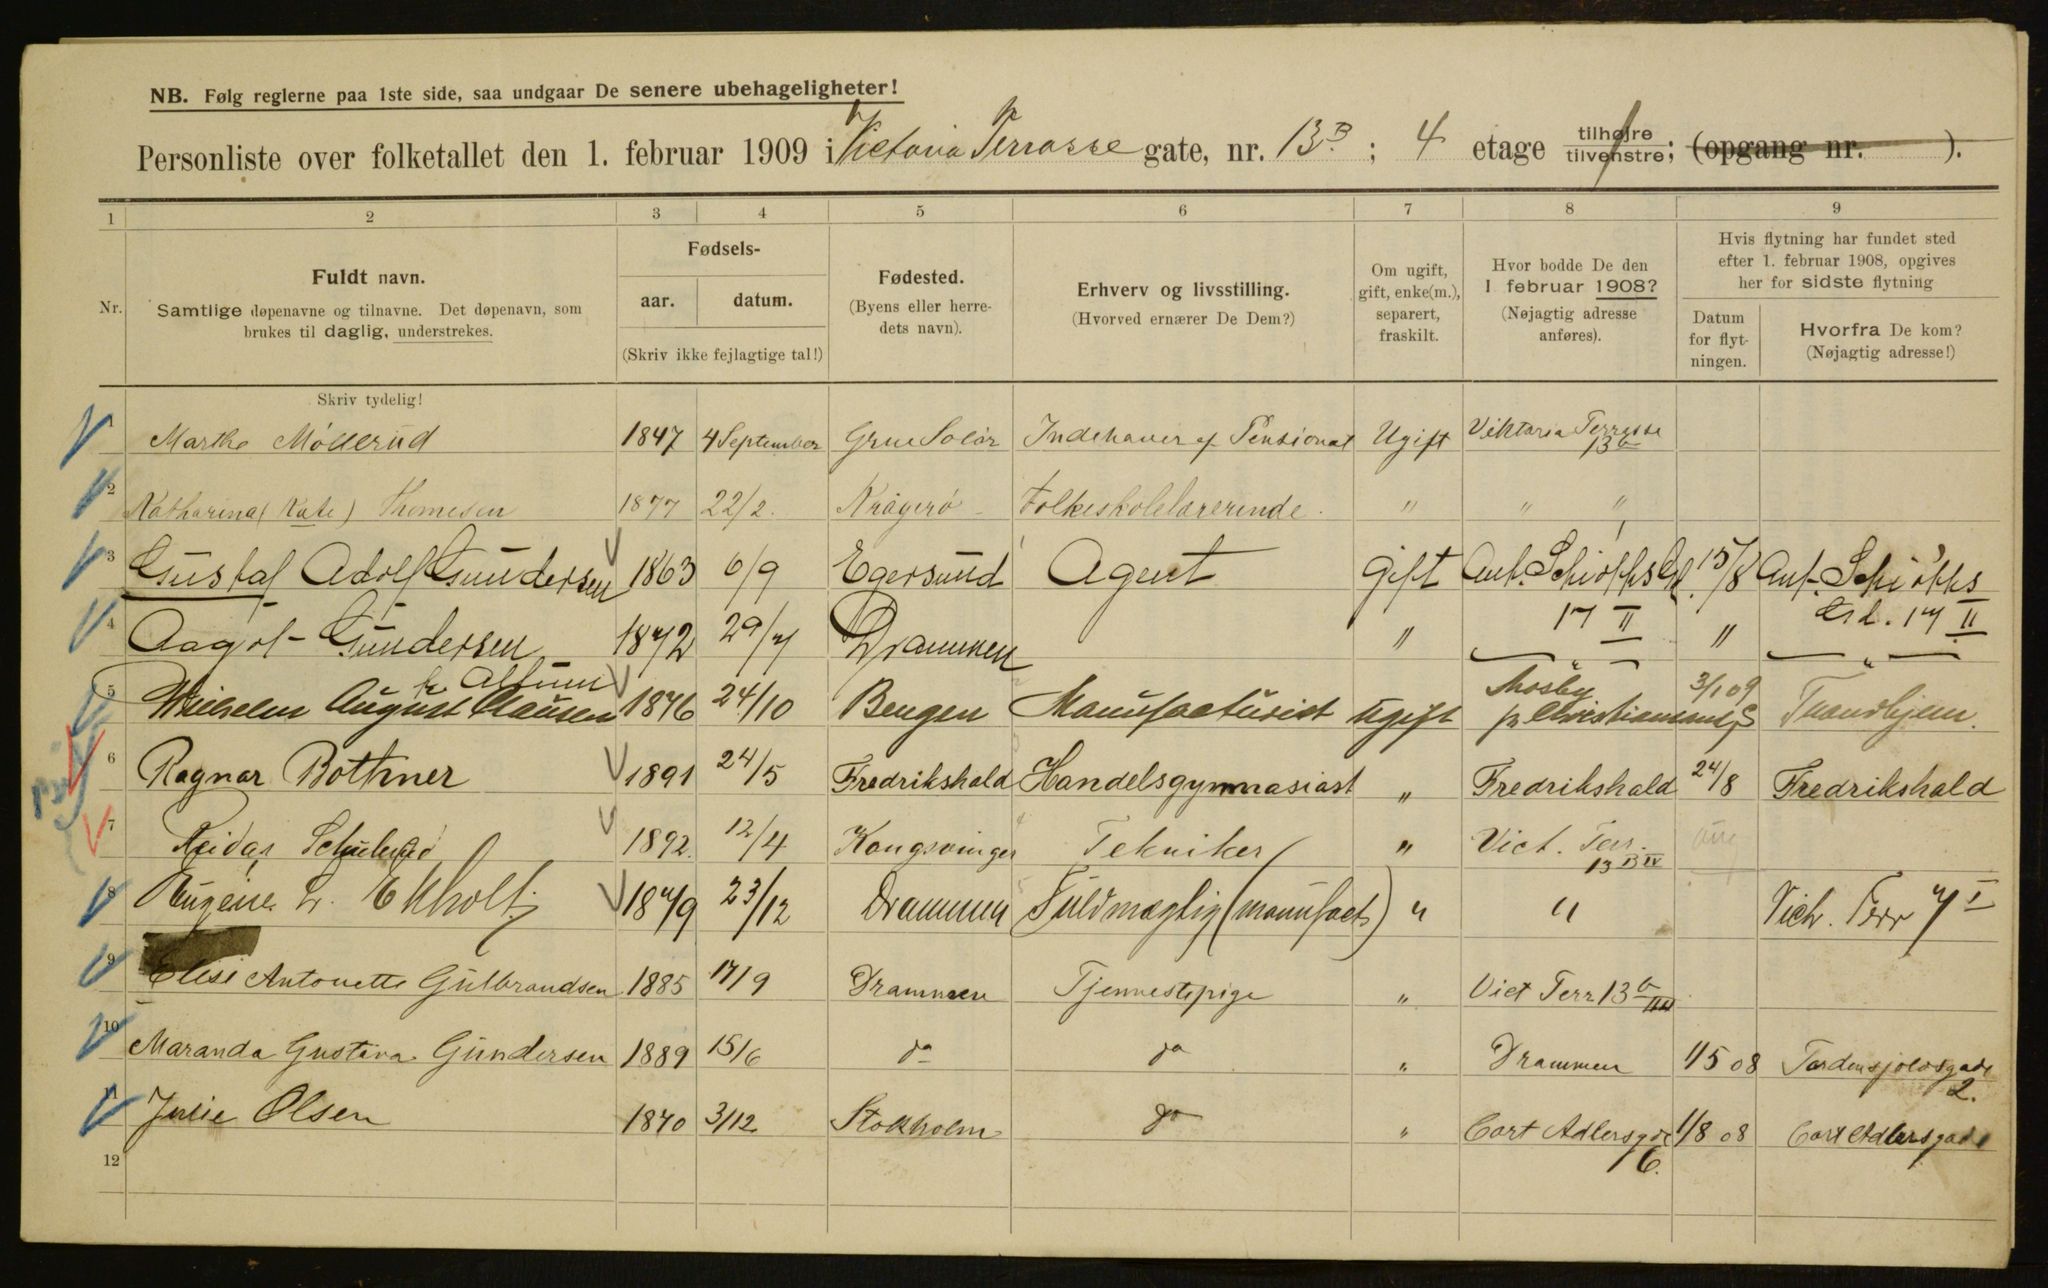 NB. Følg reglerne paa 1ste side, saa undgaar De senere ubehageligheter!
Personliste over folketallet den 1. februar 1909 i Victoria Terrasse gate, nr. 13B; 4 etage tilhøjre tilvenstre; (opgang nr. ).
1 2 3 4 5 6 7 8 9
Nr.
Fuldt navn.
Samtlige døpenavne og tilnavne. Det døpenavn, som
brukes til daglig, understrekes.
Fødsels-
aar. datum.
(Skriv ikke fejlagtige tal!)
Fødested.
(Byens eller herre-
dets navn).
Erhverv og livsstilling.
(Hvorved ernærer De Dem?)
Om ugift,
gift, enke(m.),
separert,
fraskilt.
Hvor bodde De den
1 februar 1908?
(Nøjagtig adresse
anføres).
Hvis flytning har fundet sted
efter 1. februar 1908, opgives
her for sidste flytning
Datum
for flyt-
ningen.
Hvorfra De kom?
(Nøjagtig adresse!)
Skriv tydelig!
1 Marthe Möllerud 1847 4 September Grue Solör Indehaver af Pensionat Ugift Viktoria Terrasse
13b
2 Katharina (Kate) Thomesen 1877 22/2. Kragerö Folkeskolelærerinde. " " "
3 Gustaf Adolf Gundersen 1863 6/9 Egersund Agent Gift Ant. Schiöthsgd. 15/8 Ant. Schiöths
17 II Gd. 17 II
4 Aagot Gundersen 1872 29/7 Drammen " " " "
5 Wilhelm August Clausen 1876 24/10 Bergen Manufacturist ugift Mosby 3/1 09 Trondhjem.
p Christianssand
6 Ragnar Bothner 1891 24/5 Fredrikshald Handelsgymnasiast " Fredrikshald 24/8 Fredrikshald
7 Reidar 1892. 12/4 Kongsvinger Tekniker " Vict. Terr.
13 B IV
8 Eugene L. Ekholt 1879 23/12 Drammen Fuldmægtig (manufact) " " Vict. Terr 7 I
9 Elise Antonette Gulbrandsen 1885 17/9 Drammen Tjennestepige " Vict Terr 13b
IIII
10 Maranda Gustava Gundersen 1889 15/6 do do " Drammen 1/5 08 Tordensjoldsgade
2.
11 Julie Olsen 1870 3/12 Stokholm do " Cort Adlersgde 1/8 08 Cort Adlersgade
6.
12